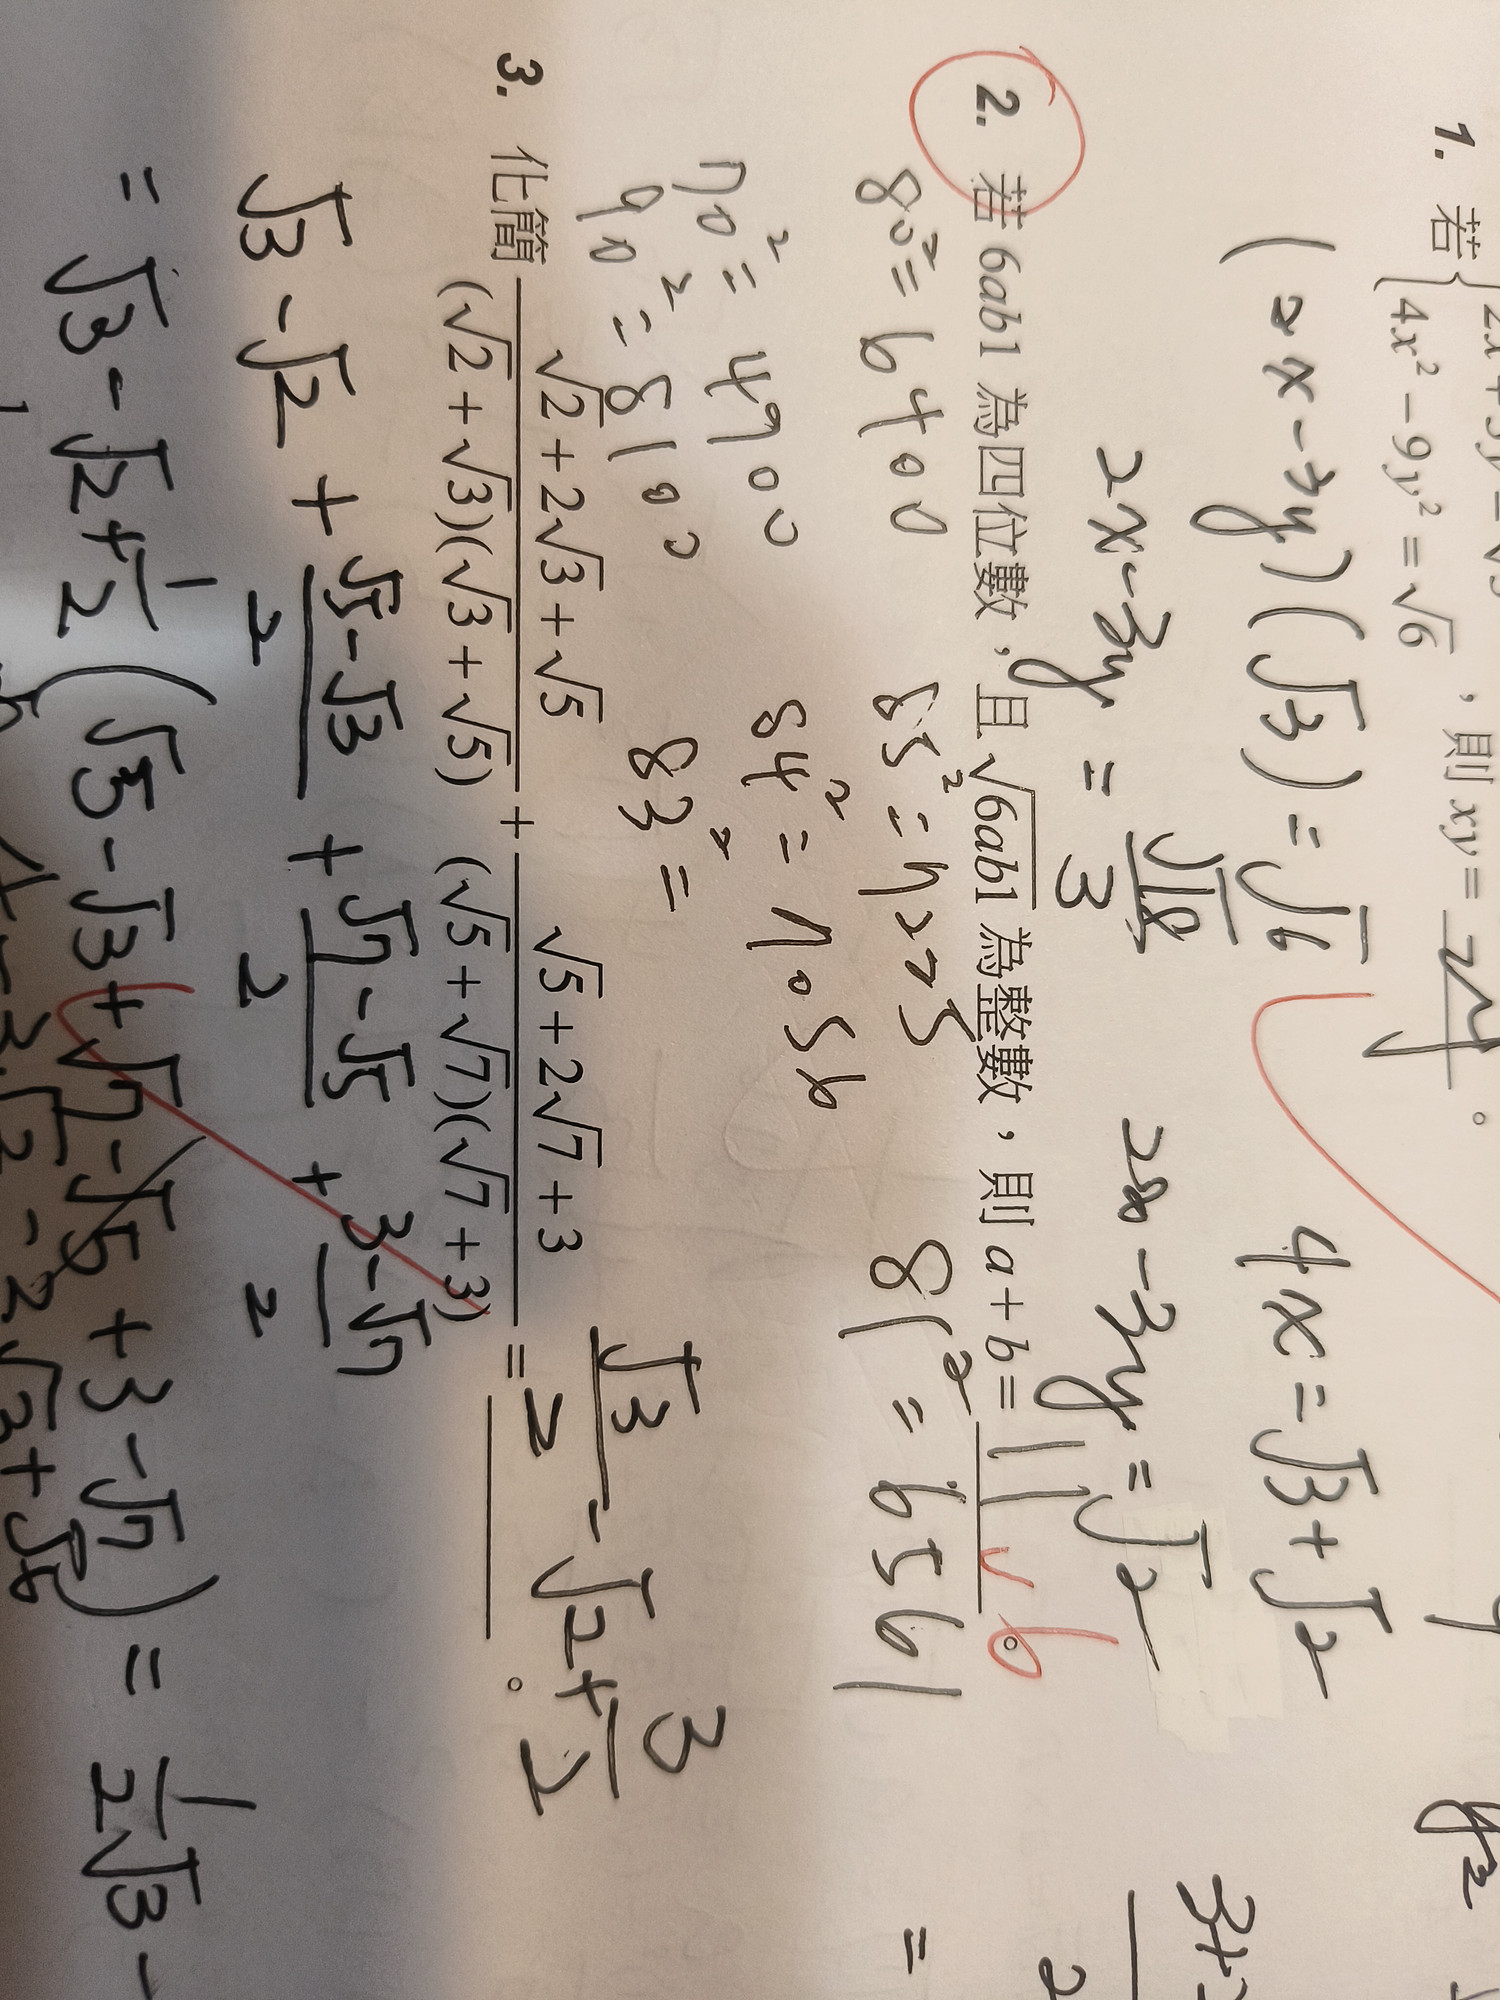 1. 若 { 2x+3y=√3
4x²-9y²=√6 , 則 xy = 。
(2x-3y)(√3)=√6
4x=√3+√2
2x-3y=√18/3
2x-3y=√2
2. 若 6ab1 為四位數,且 √6ab1 為整數,則 a+b= 11 6 。
80²=6400
85²=7225
81²=6561
70²=4900
84²=7056
90²=8100
83²=
3. 化簡 (√2+2√3+√5)/((√2+√3)(√3+√5)) + (√5+2√7+3)/((√5+√7)(√7+3)) = 。
√3/2-√2+3/2
√3-√2+(√5-√3)/2+(√7-√5)/2+(3-√7)/2
=√3-√2+1/2(√5-√3+√7-√5+3-√7)=1/2√3-